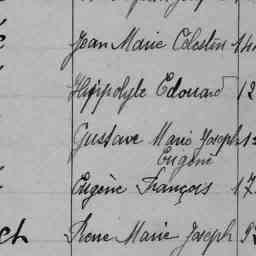 Jean Marie Célestin
Hippolyte Edouard 12
Gustave Marie Joseph
Eugène
Eugène François 17
Rene Marie Joseph